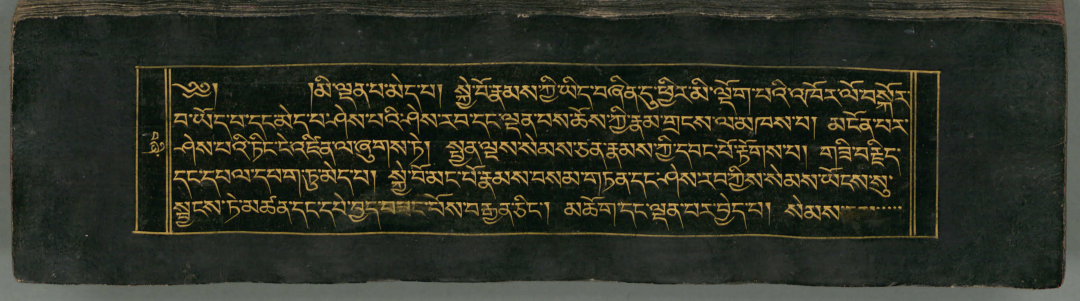 ༄༅། །མི་ལྡན་པ་མེད་པ། སྐྱེ་བོ་རྣམས་ཀྱི་ཡིད་བཞིན་དུ་ཕྱིར་མི་ལྡོག་པའི་འཁོར་ལོ་བསྐོར་
བ་ཡོད་པ་དང་མེད་པ་ཤེས་པའི་ཤེས་རབ་དང་ལྡན་པས་ཆོས་ཀྱི་རྣམ་གྲངས་ལ་མཁས་པ། མངོན་པར་
ཤེས་པའི་ཏིང་ངེ་འཛིན་ལ་ཞུགས་ཏེ། སྤྱན་ལྔས་སེམས་ཅན་རྣམས་ཀྱི་དབང་པོ་རྟོགས་པ། གཟི་བརྗིད་
དང་དཔལ་དཔག་ཏུ་མེད་པ། སྐྱེ་བོ་མང་པོ་རྣམས་བསམ་གཏན་དང་ཤེས་རབ་ཀྱིས་སེམས་ཡོངས་སུ་
སྦྱངས་ཏེ་མཚན་དང་དཔེ་བྱད་བཟང་པོས་བརྒྱན་ཅིང་། མཆོག་དང་ལྡན་པར་བྱེད་པ། སེམས་